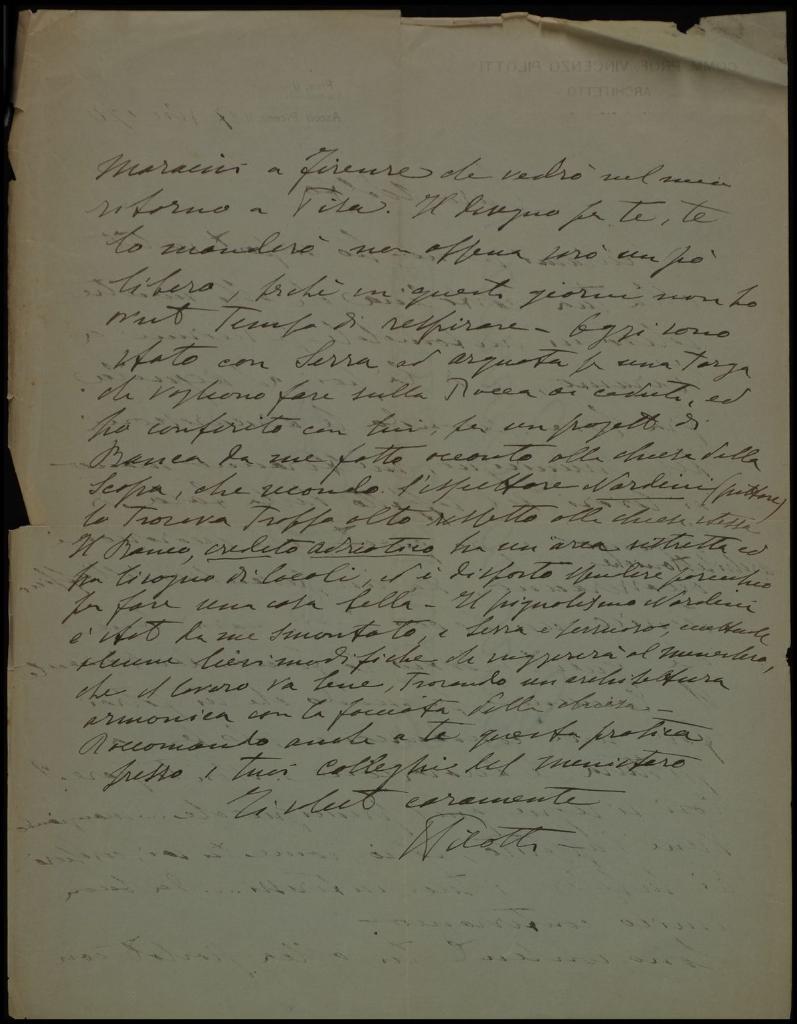 Maraini a Firenze che vedrò nel mio
ritorno a Pisa. Il disegno per te, te
lo manderò non appena sarò un pò
libero, perchè in questi giorni non ho
avuto tempo di respirare - Oggi sono
stato con Serra ad Arquata per una targa
che vogliono fare sulla Rocca ai caduti, ed
ho conferito con lui, per un progetto di
Banca da me fatto accanto alla chiesa della
Scopa, che secondo l'ispettore Nardini (pittore)
lo trova troppo alto rispetto alla chiesa stessa
Il Banco, credito adriatico ha un'area ristretta ed
ha bisogno di locali, ed è disposto spendere parecchio
per fare una cosa bella - Il pignolismo Nardini
è stato da me smontato, e Serra è persuaso,
alcune lievi modifiche che suggererà al ministero,
che il lavoro va bene, trovando un'architettura
armonica con la facciata della chiesa -
Raccomando anche a te questa pratica
presso i tuoi colleghi del ministero
Ti saluto caramente
VPilotti -
COMM. PROF. VINCENZO PILOTTI
ARCHITETTO